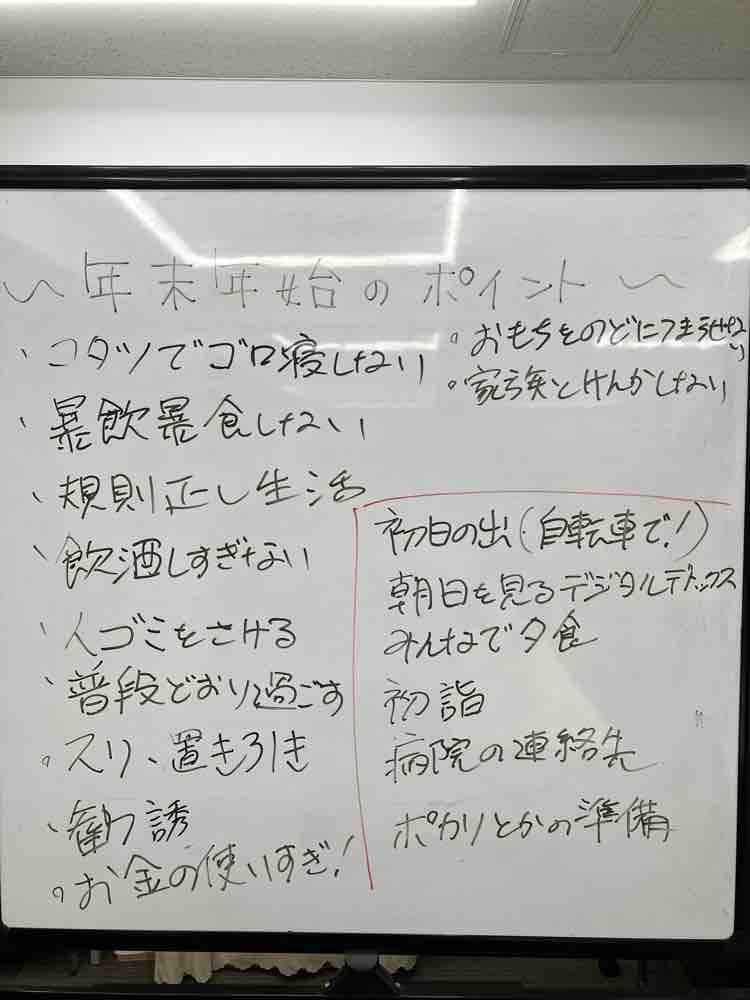 〜年末年始のポイント〜
、コタツでゴロ寝しない
、暴飲暴食しない
、規則正し生活
、飲酒しすぎない
、人ゴミをさける
、普段どおり過ごす
。スリ、置き引き
、勧誘
。お金の使いすぎ!
。おもちをのどにつまらせない
。家族とけんかしない
初日の出(自転車で!)
朝日を見るデジタルデトックス
みんなで夕食
初詣
病院の連絡先
ポカリとかの準備